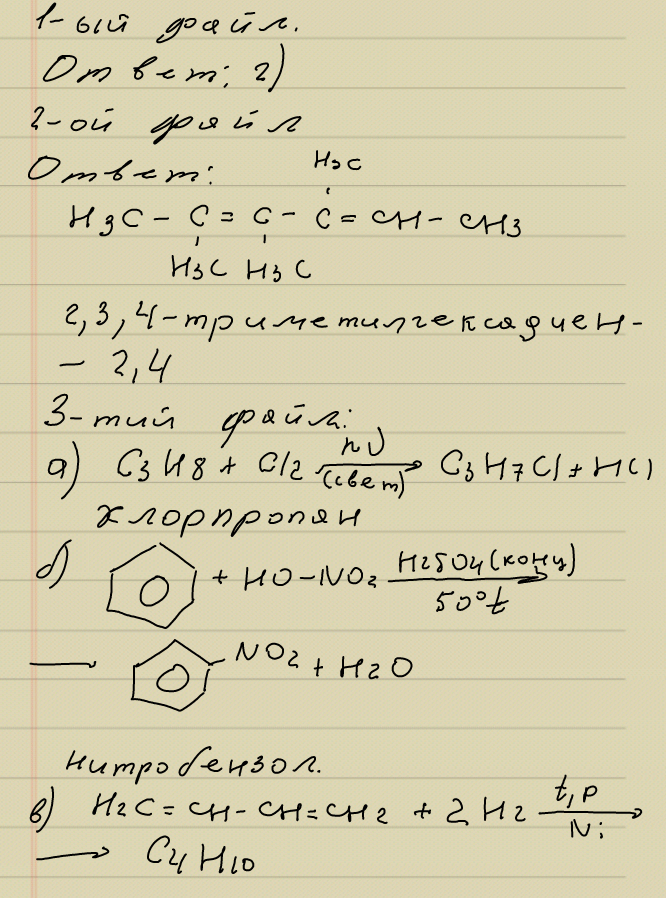 1-ый файл.
Ответ: 2)
2-ой файл
Ответ:
H3C
H3C - C = C - C = CH - CH3
H3C H3C
2,3,4-триметилгексадиен-
- 2,4
3-тий файл:
а) C3H8 + Cl2 hν (свет) → C3H7Cl + HCl
хлорпропан
б) + HO-NO2 H2SO4(конц) 50°t →
— NO2 + H2O
Нитробензол.
в) H2C=CH-CH=CH2 + 2H2 t,p Ni →
→ C4H10